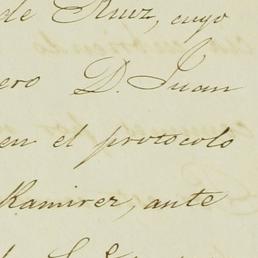 de Ruiz, cuyo
ero D. Juan
en el protocolo
Ramirez, ante